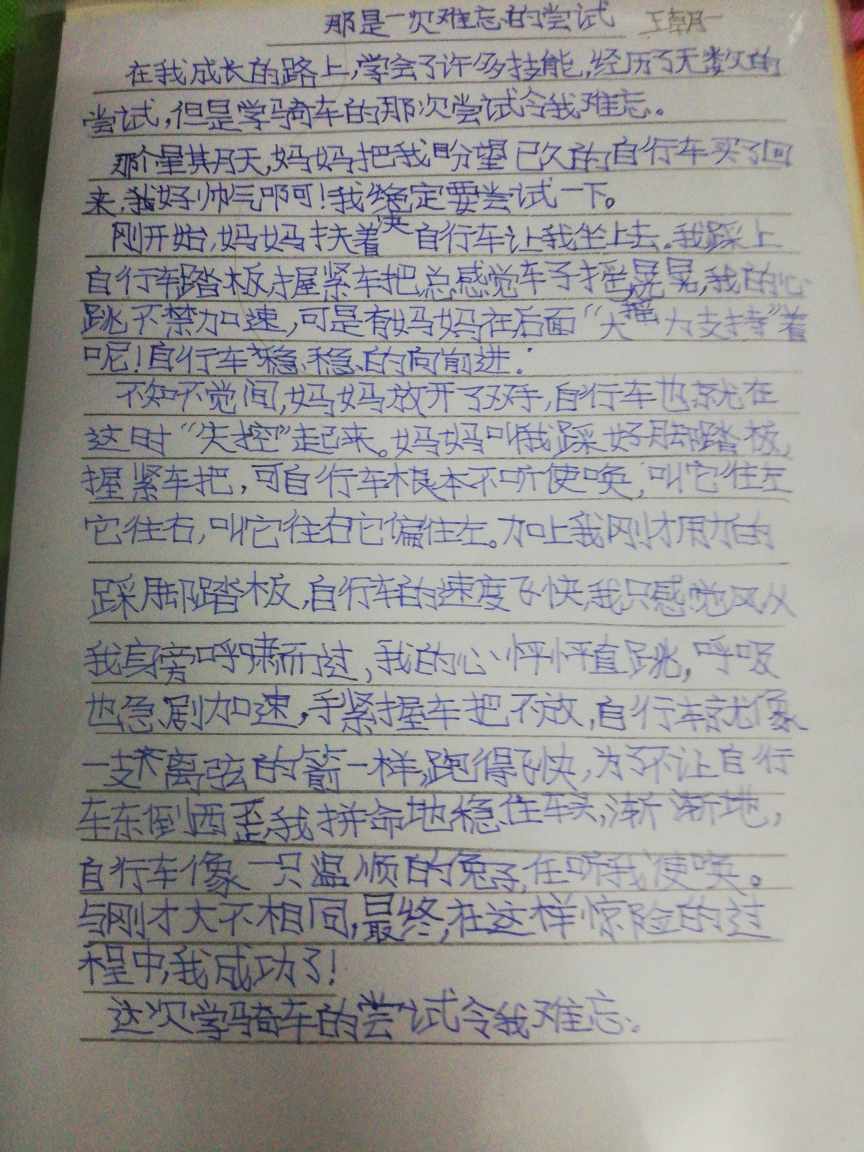 那是一次难忘的尝试 王朝一
在我成长的路上,学会了许多技能,经历了无数次的
尝试,但是学骑车的那次尝试令我难忘。
那个星期天,妈妈把我盼望已久的自行车买了回
来,我好帅气啊!我绝定要尝试一下。
刚开始,妈妈扶着自行车让我坐上去。我踩上
自行车踏板,握紧车把,总感觉车子摇晃晃,我的心
跳不禁加速,可是有妈妈在后面“大强力支持”着
呢!自行车稳稳的向前进.
不知不觉间,妈妈放开了双手,自行车也就在
这时“失控”起来。妈妈叫我踩好脚踏板,
握紧车把,可自行车根本不听使唤,叫它往左
它往右,叫它往右它偏往左。加上我刚才用力的
踩脚踏板,自行车的速度飞快,我只感觉风从
我身旁呼啸而过,我的心怦怦直跳,呼吸
也急剧加速,手紧握车把不放,自行车就像
一支离弦的箭一样,跑得飞快,为了不让自行
车东倒西歪,我拼命地稳住车头,渐渐地,
自行车像一只温顺的兔子,任听我使唤。
与刚才大不相同,最终,在这样惊险的过
程中,我成功了!
这次学骑车的尝试令我难忘.